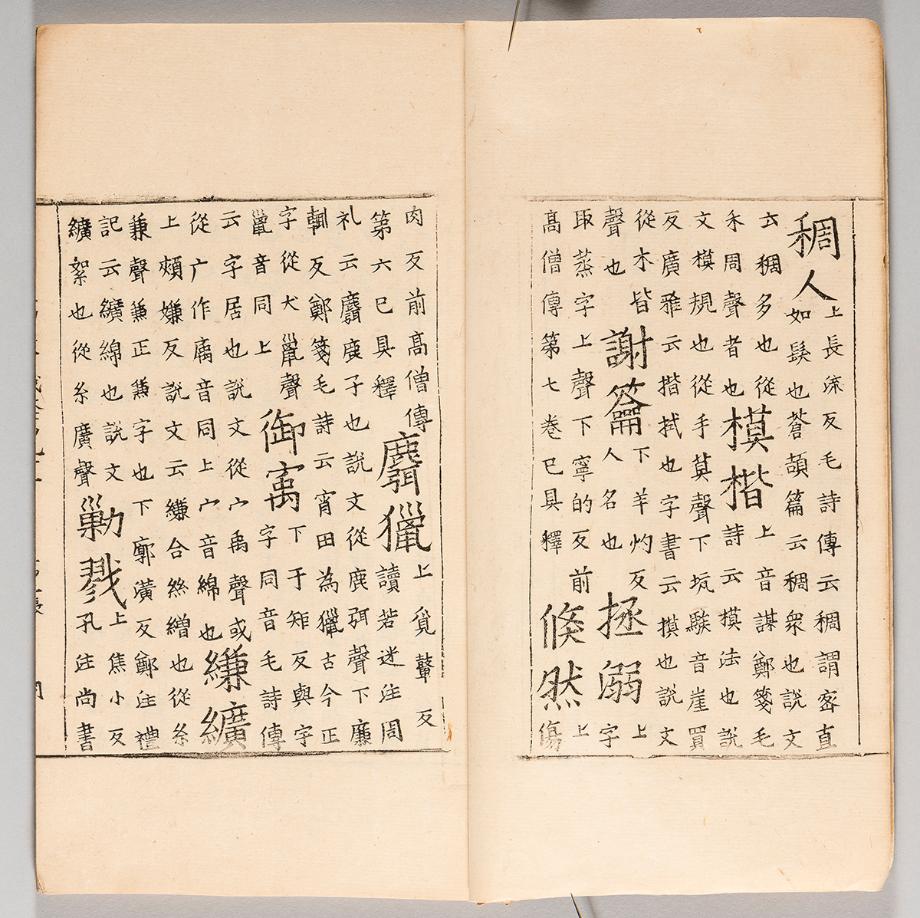 稠人上長流反毛詩傳云稠謂宻直
如髮也蒼頡篇云稠衆也説文
云稠多也從
禾周聲者也
模楷上音謀鄭箋毛
詩云模法也説
文模規也從手莫聲下坑駭音崖買
反廣雅云揩拭也字書云模也説文
從木皆
聲也
謝籥下羊灼反
人名也
拯溺上字
取蒸字上聲下寧的反前
髙僧傳第七卷已具釋
倏然上傷
肉反前髙僧傳
第六已具釋
麛獵上覓鼙反
讀若迷注周
礼云麛麌子也説文從鹿弭聲下廉
輒反鄭箋毛詩云宵田為獵古今正
字從犬巤聲
巤音同上
御㝢下于矩反與字
字同音毛詩傳
云字居也説文從宀禹聲或
從广作㢏音同上宀音綿也
縑纊
上頰嫌反説文云縑合絲繒也從糸
兼聲兼正兼字也下廓潢反鄭注禮
記云纊綿也説文
纊絮也從糸廣聲
勦戮上焦小反
孔注尚書